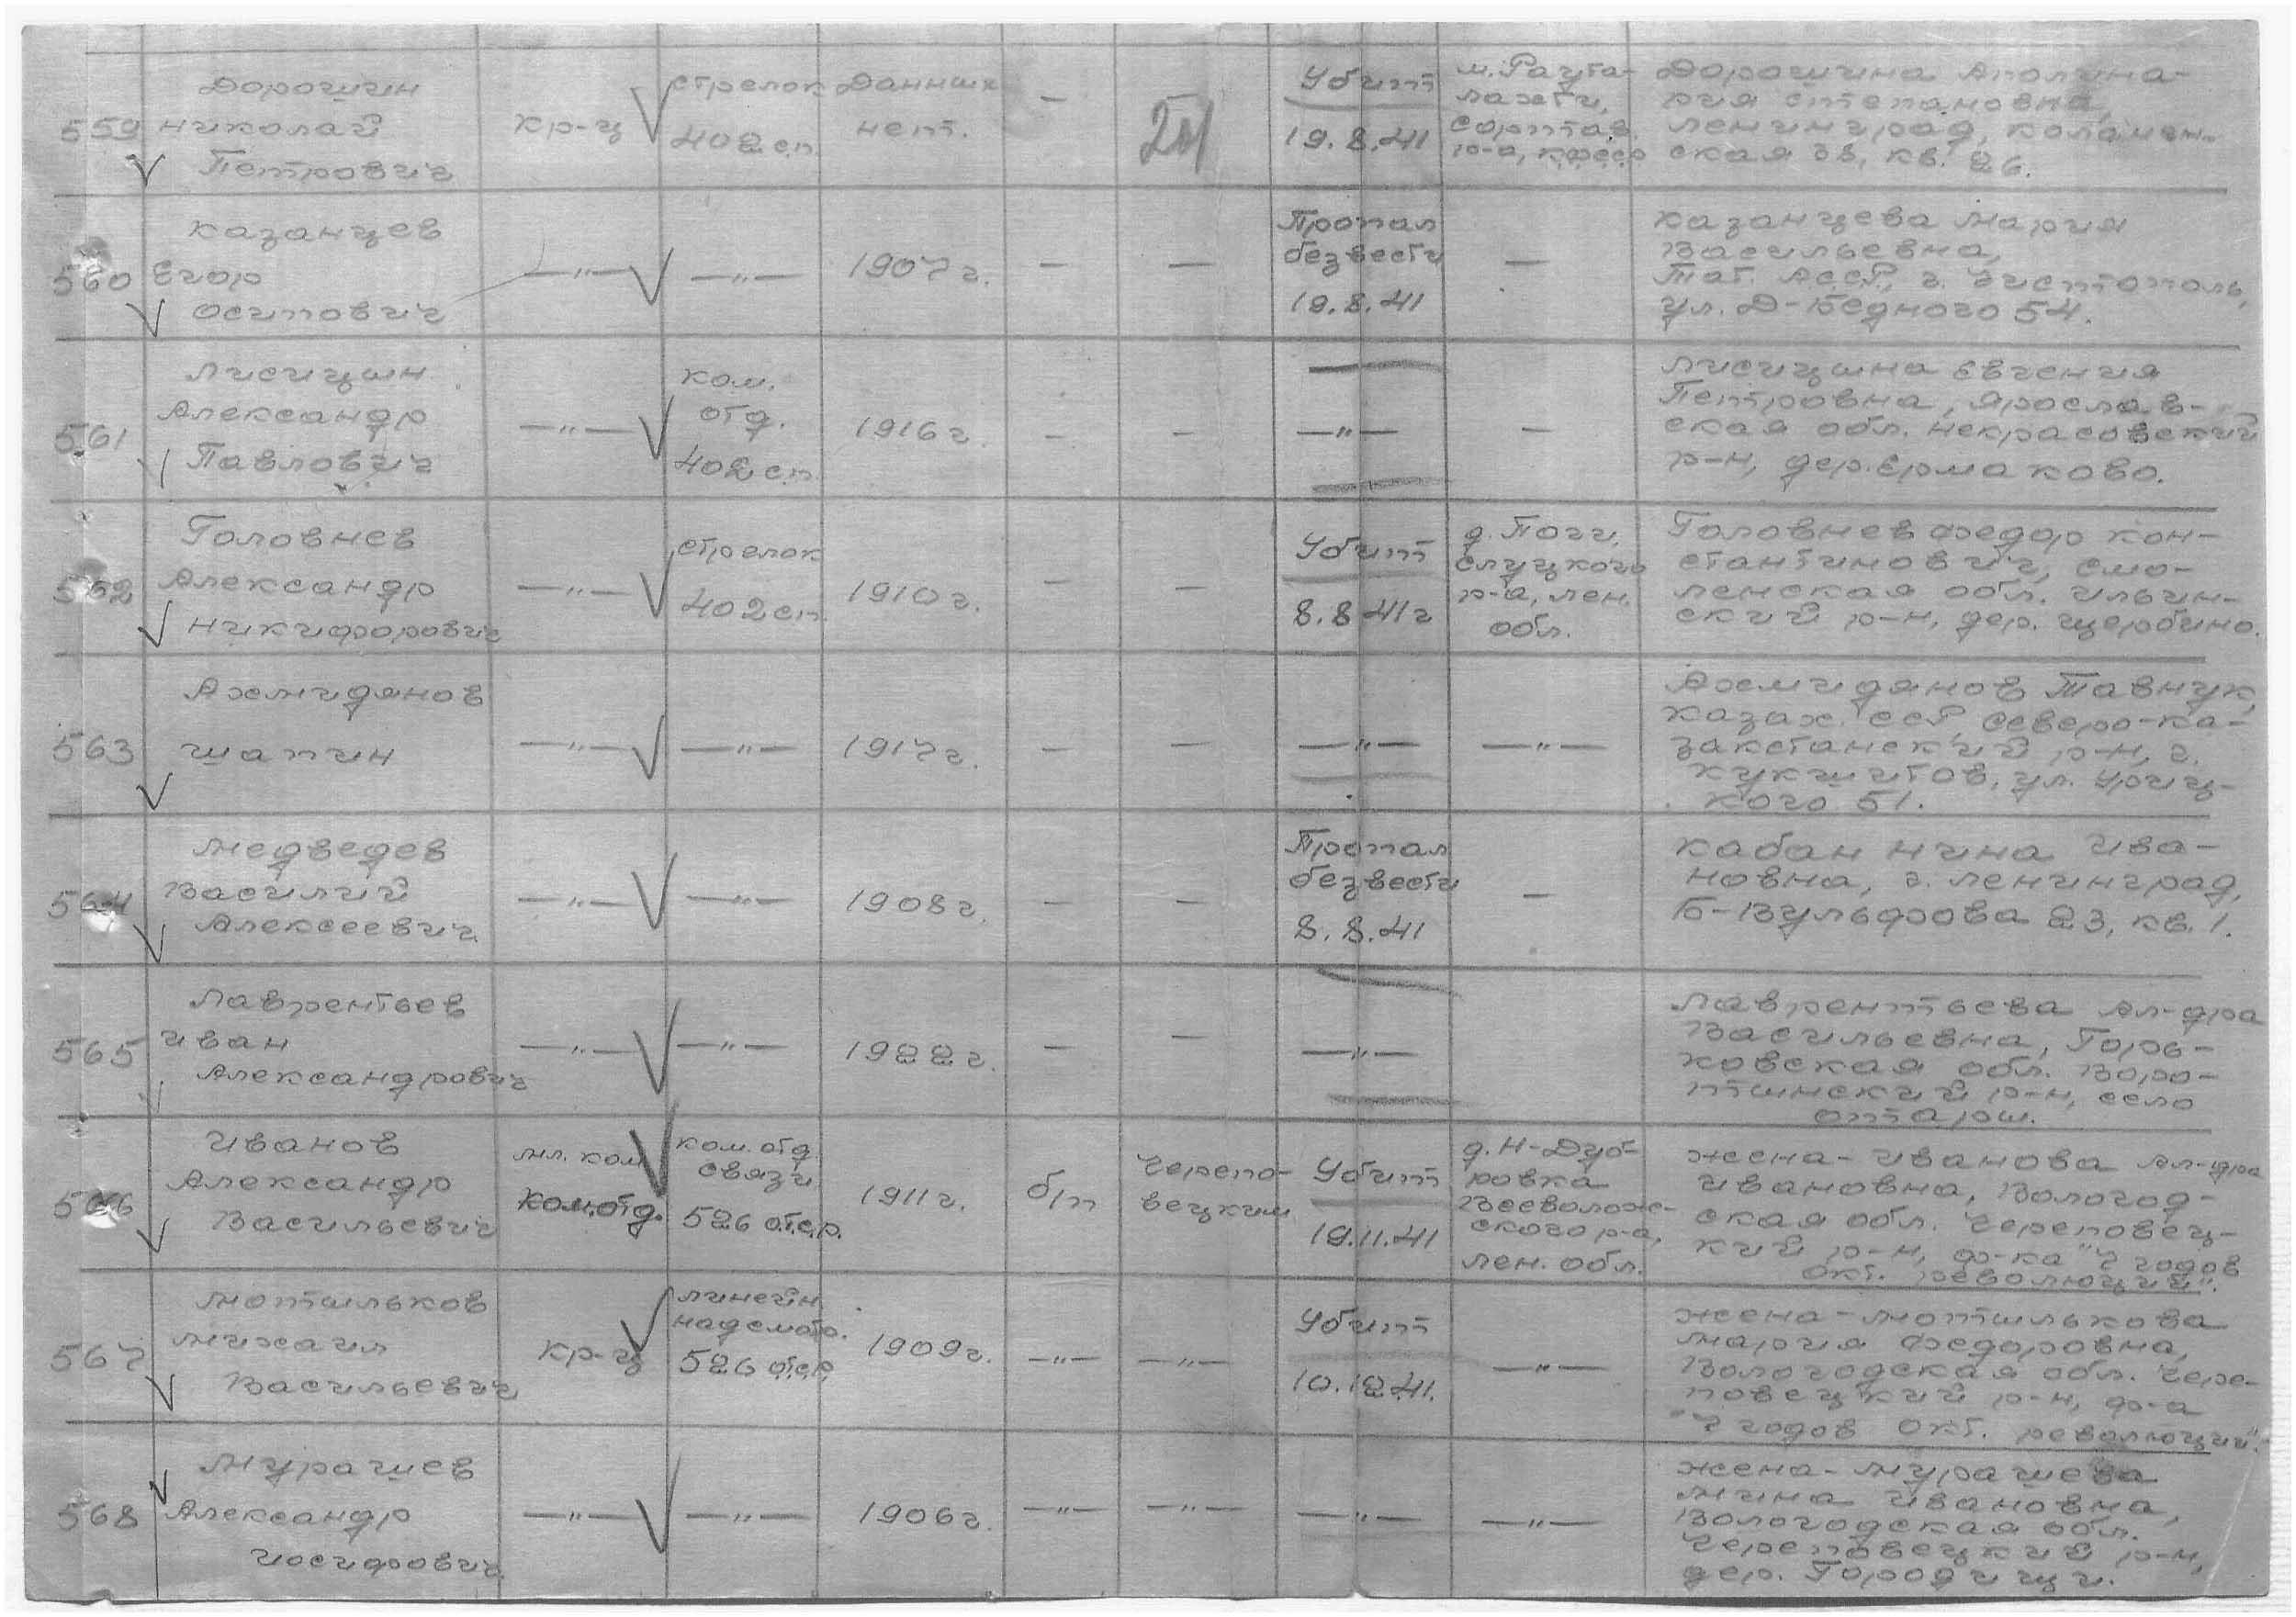 559
Дорошин
Николай
Петрович
кр-ц
стрелок
402 сп.
Данных
нет.
—
—
Убит
19.8.41
м. Раута-
лахти,
сортав.
р-а, кфсср
Дорошина Аполина-
рия Степановна,
Ленинград, коломен-
ская 38, кв. 26.
560
Казанцев
Егор
Осипович
—"—
—"—
1907 г.
—
—
Пропал
безвести
19.8.41
—
Казанцева Мария
Васильевна,
Тат. АССР, г. Чистополь,
ул. Д-Бедного 54.
561
Лисицын
Александр
Павлович
—"—
ком.
отд.
402 сп.
1916 г.
—
—
—"—
—
Лисицына Евгения
Петровна, Ярослав-
ская обл. Некрасовский
р-н, дер. Ермаково.
562
Головнев
Александр
Никифорович
—"—
стрелок
402 сп.
1910 г.
—
—
Убит
8.8 41 г
д. Поги
слуцкого
р-а, лен.
обл.
Головнев Федор Кон-
стантинович, Смо-
ленская обл. Ильин-
ский р-н, дер. Щербино.
563
Ахмидянов
Шапин
—"—
—"—
1917 г.
—
—
—"—
—"—
Ахмидянов Тавнук,
Казах. ССР, Северо-ка-
закстанский р-н, г.
Кукшитов, ул. Уриц-
кого 51.
564
Медведев
Василий
Алексеевич
—"—
—"—
1908 г.
—
—
Пропал
безвести
8.8.41
—
Кабан Нина Ива-
новна, г. Ленинград,
Б-Вульфова 23, кв. 1.
565
Лаврентьев
Иван
Александрович
—"—
—"—
1922 г.
—
—
—"—
Лаврентьева Ал-дра
Васильевна, Горь-
ковская обл. Воро-
тынский р-н, село
Отары.
566
Иванов
Александр
Васильевич
мл. ком
ком.отд.
ком. отд.
связи
526 отс.р.
1911 г.
б/п
Черепо-
вецким
Убит
19.11.41
д. Н-Дуб-
ровка
Всеволож-
ского р-а,
лен. обл.
жена - Иванова Ал-дра
Ивановна, Вологод-
ская обл. Череповец-
кий р-н, ф-ка "7 годов
Окт. революции".
567
Мотыльков
Михаил
Васильевич
кр-ц
линейн.
надсмотр.
526 отс.р
1909 г.
—"—
—"—
Убит
10.12.41.
—"—
жена - Мотылькова
Мария Федоровна,
Вологодская обл. Чере-
повецкий р-н, ф-а
"7 годов Окт. революции".
568
Мурашев
Александр
Иосифович
—"—
—"—
1906 г.
—"—
—"—
—"—
—"—
жена - Мурашева
Мина Ивановна,
Вологодская обл.
Череповецкий р-н,
дер. Городищи.